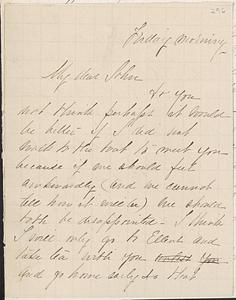 296
Friday morning
My dear John
Do you
not think perhaps it would
be better if I did not
because if we should feel
awkwardly (and we cannot
tell how it will be) we should
both be disappointed - I think
I will only go to Ellen's and
take tea with you
and go home early so that